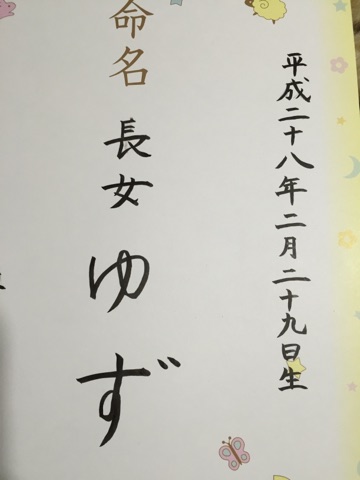 平成二十八年二月二十九日生
命名
長女
ゆず